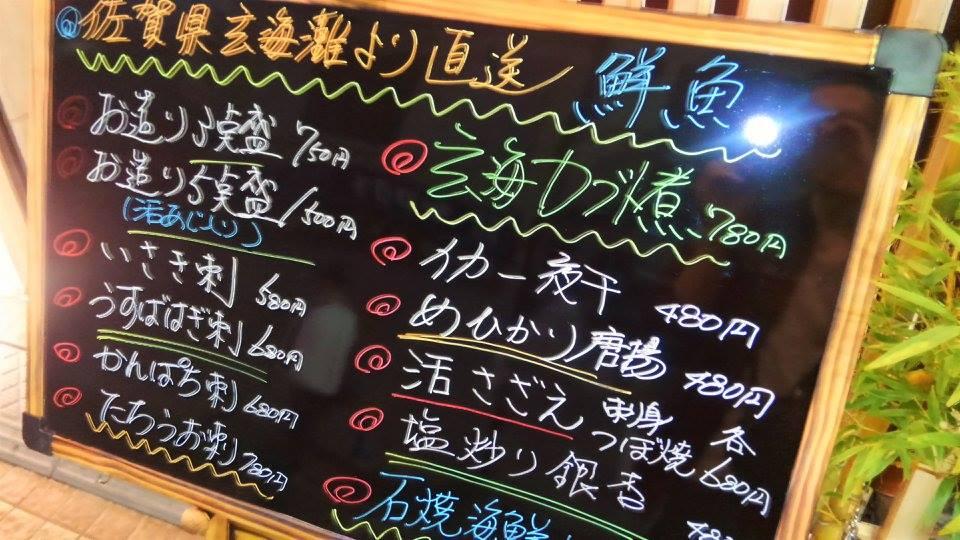 佐賀県玄海灘より直送 鮮魚
お造り3点盛 750円
お造り5点盛 1500円
(活あじ入り)
いさき刺 580円
うすばはぎ刺 680円
かんぱち刺 680円
たちうお刺 780円
玄海カブ煮 780円
イカ一夜干 480円
めひかり唐揚 480円
活さざえ 刺身 つぼ焼 各680円
塩炒り銀杏
石焼海鮮